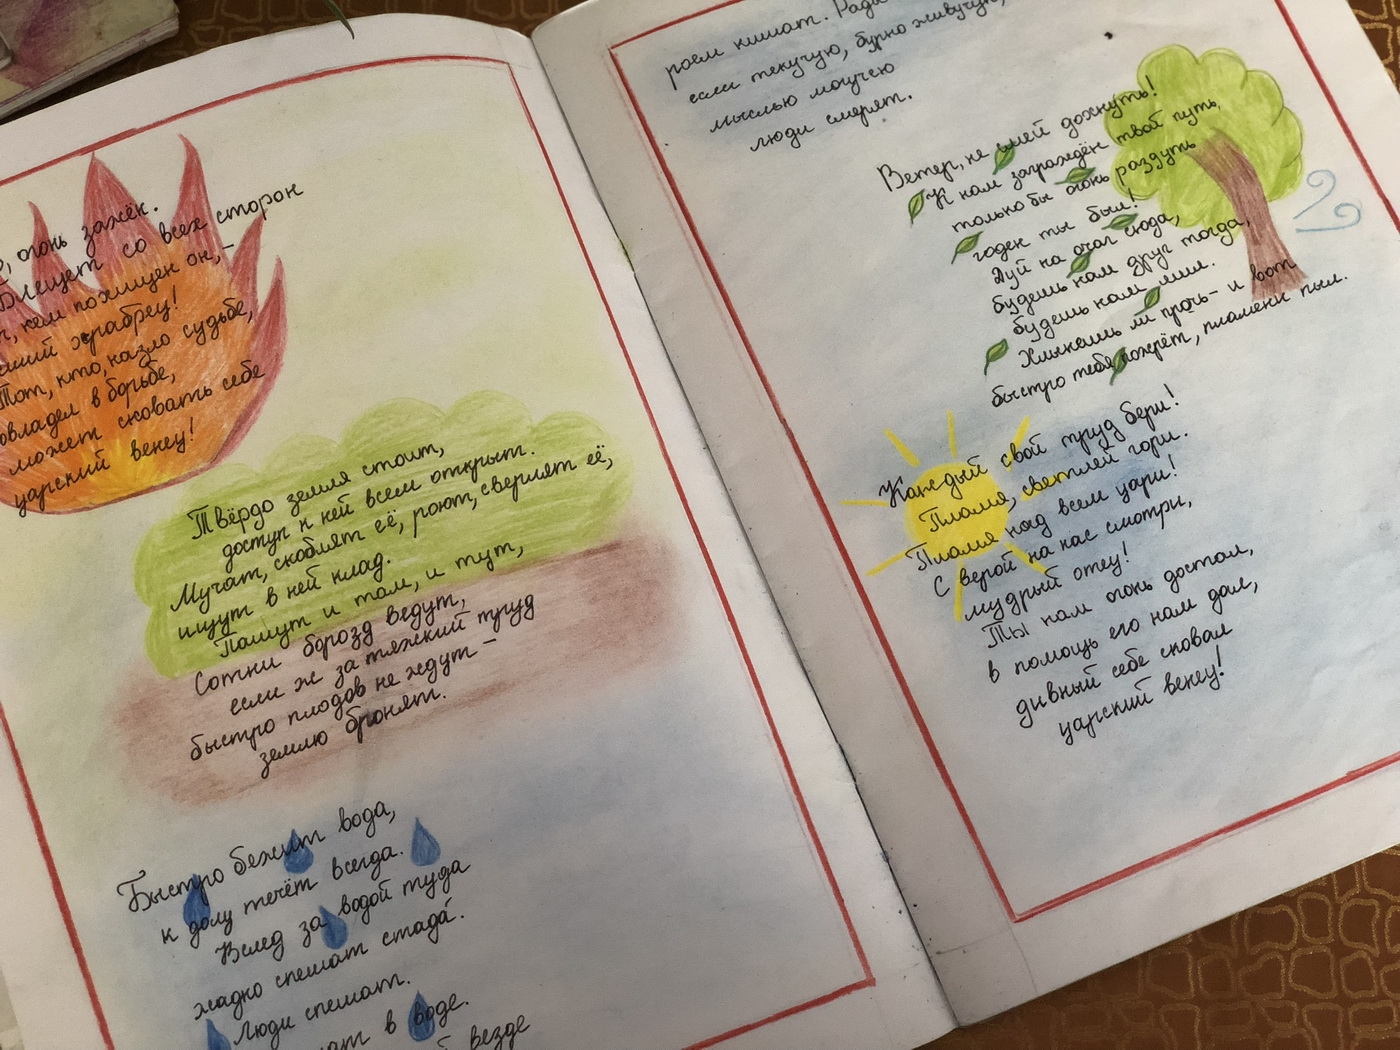 огонь зажёк.
Блещет со всех сторон
кем похищен он,—
храбрец!
Тот, кто, назло судьбе,
овладел в борьбе,
может сковать себе
царский венец!
Твёрдо земля стоит,
доступ к ней всем открыт.
Мучат, скоблят её, роют, сверлят её,
ищут в ней клад.
Пашут и там, и тут,
Сотни борозд ведут,
если ж за тяжкий труд
быстро плодов не ждут —
землю бронят.
Быстро бежит вода,
к долу течёт всегда.
Вслед за водой туда
жадно спешат стада́.
Люди спешат.
в воде.
везде
роем кишат.
если текучую, бурно живучую,
мыслью могучею
люди смерят.
Ветер, не смей дохнуть!
К нам заграждён твой путь,
только бы огонь раздуть
годен ты был!
Дуй на очаг сюда,
будешь нам друг тогда,
будешь нам мил.
Хлынешь ли прочь- и вот
быстро тебя пожрёт, пламени пыл.
Каждый свой труд бери!
Пламя, светлей гори.
Пламя над всем цари!
С верой на нас смотри,
мудрый отец!
Ты нам огонь достал,
в помощь его нам дал,
дивный себе сковал
царский венец!